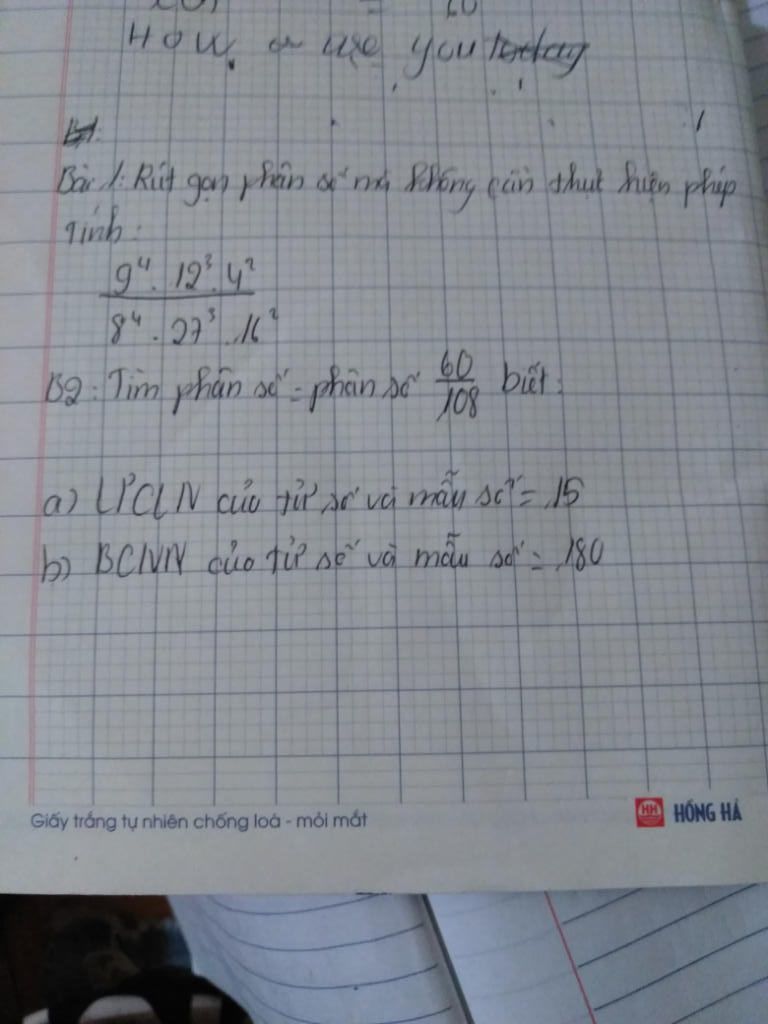 = 20
How a are you today
B1:
Bài 1: Rút gọn phân số mà không cần thực hiện phép
tính:
9⁴ . 12³ . 4²
8⁴ . 27³ . 16²
B2: Tìm phân số = phân số 60/108 biết:
a) ƯCLN của tử số và mẫu số = 15
b) BCNN của tử số và mẫu số = 180
Giấy trắng tự nhiên chống loá - mỏi mắt
HH HỒNG HÀ